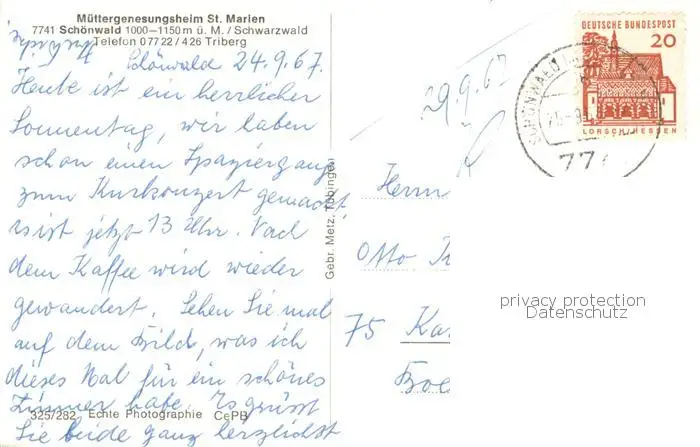 Müttergenesungsheim St. Marien
7741 Schönwald 1000—1150 m ü. M. / Schwarzwald
Telefon 07722/426 Triberg
Schönwald 24.9.67.
Heute ist ein herrlicher
Sonnentag, wir haben
schon einen Spaziergang
zum Kurkonzert gemacht,
es ist jetzt 13 Uhr. Nach
dem Kaffee wird wieder
gewandert. Sehen Sie mal
auf dem Bild, was ich
dieses Mal für ein schönes
Zimmer habe. Es grüsst
Sie beide ganz herzlichst
325/282 Echte Photographie CePB
Gebr. Metz, Tübingen
29.9.67
DEUTSCHE BUNDESPOST
20
LORSCH/HESSEN
SCHÖNWALD
77
Herrn
Otto
75 Ka
privacy protection
Datenschutz